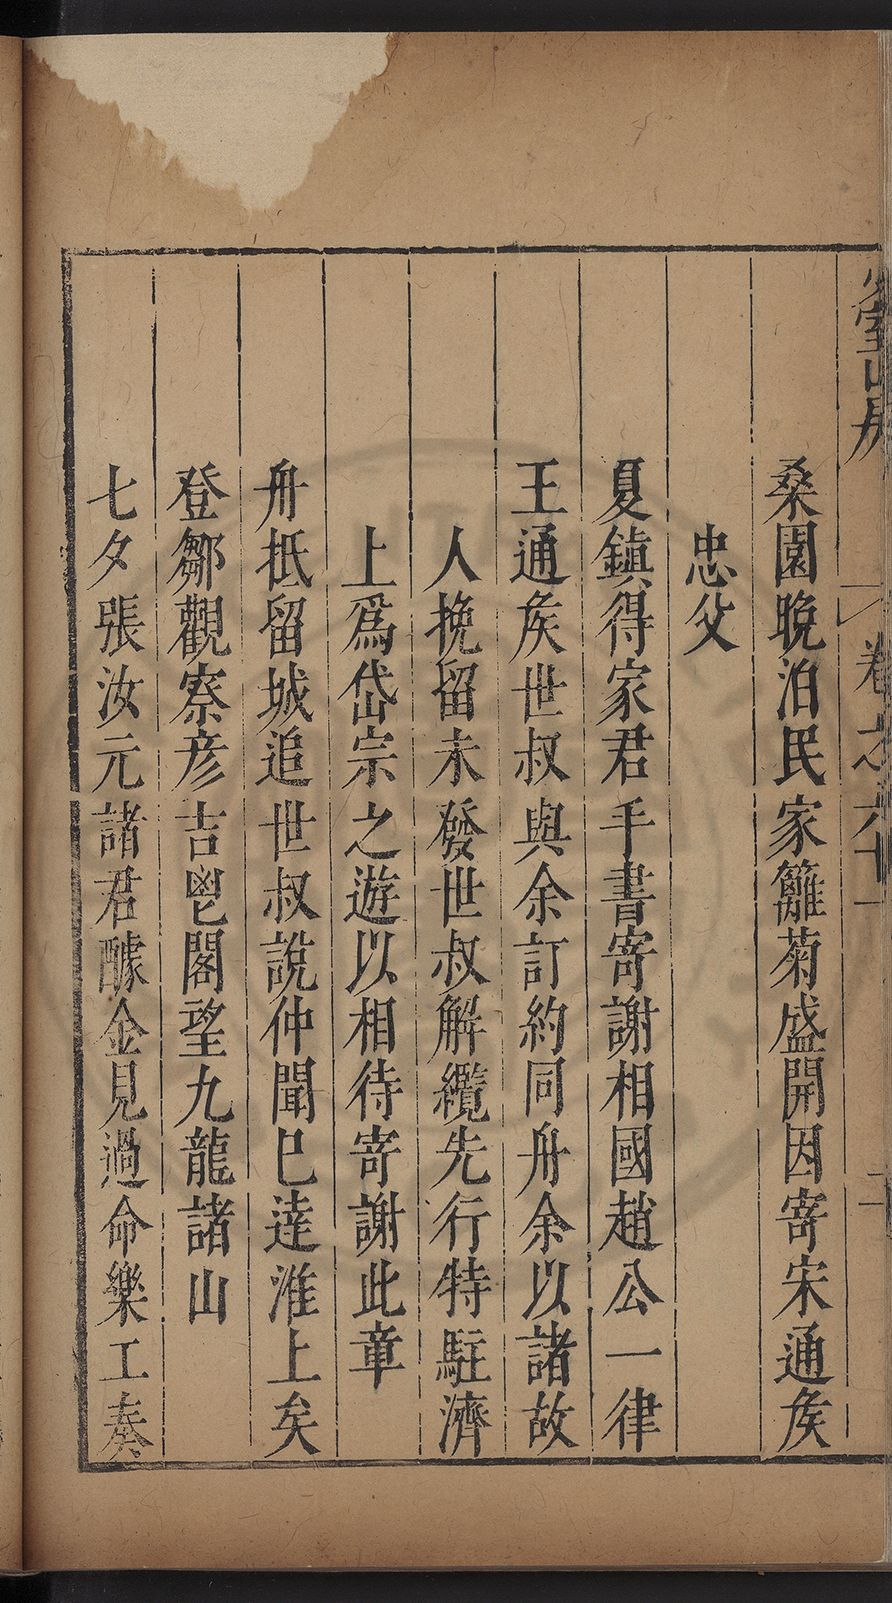 少室山房
卷之六十一
二
桑園晚泊民家籬菊盛開因寄宋通矦
忠父
夏鎮得家君手書寄謝相國趙公一律
王通矦世叔與余訂約同舟余以諸故
人挽留未發世叔解纜先行特駐濟
上爲岱宗之遊以相待寄謝此章
舟抵留城追世叔說仲聞巳達淮上矣
登鄒觀察彦吉鬯閣望九龍諸山
七夕張汝元諸君醵金見過命樂工奏